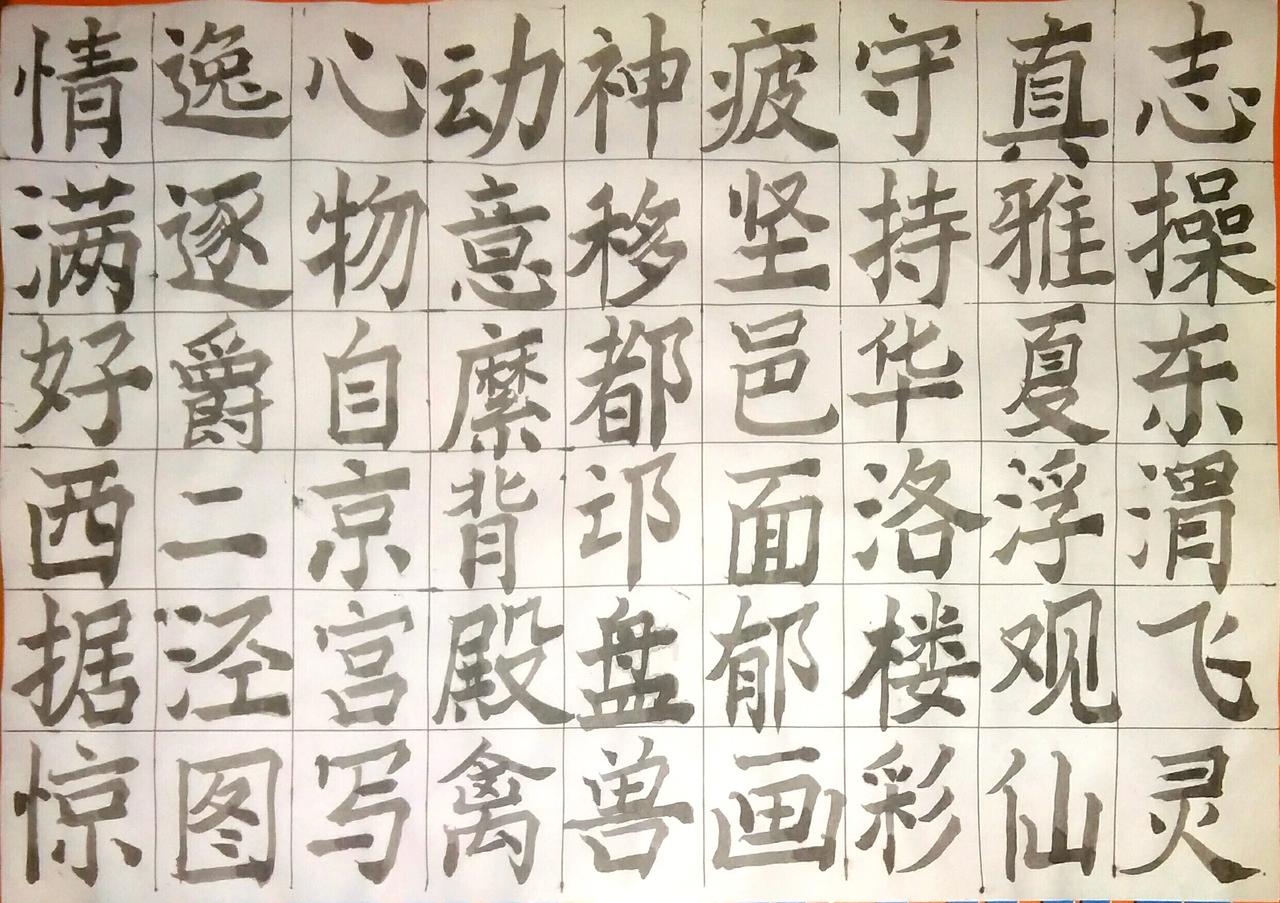 情逸心动神疲守真志
满逐物意移坚持雅操
好爵自縻都邑华夏东
西二京背邙面洛浮渭
据泾宫殿盘郁楼观飞
惊图写禽兽画彩仙灵